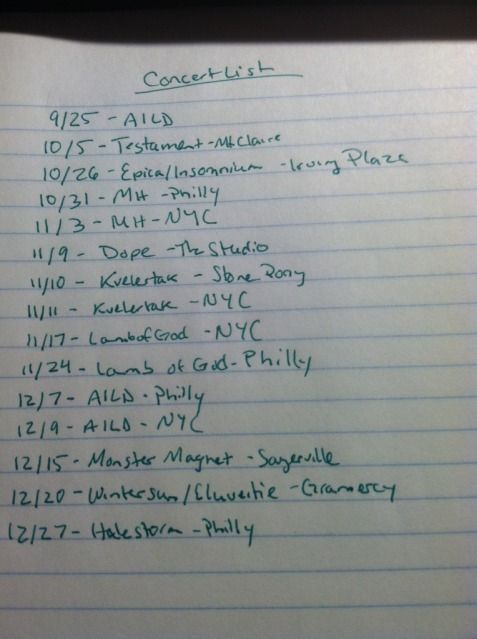 Concert List
9/25 - AILD
10/5 - Testament - Mt Claire
10/26 - Epica/Insomnium - Irving Plaza
10/31 - MH - Philly
11/3 - MH - NYC
11/9 - Dope - The Studio
11/10 - Kvelertak - Stone Pony
11/11 - Kvelertak - NYC
11/17 - Lamb of God - NYC
11/24 - Lamb of God - Philly
12/7 - AILD - Philly
12/9 - AILD - NYC
12/15 - Monster Magnet - Sayerville
12/20 - Wintersun/Eluveitie - Gramercy
12/27 - Halestorm - Philly